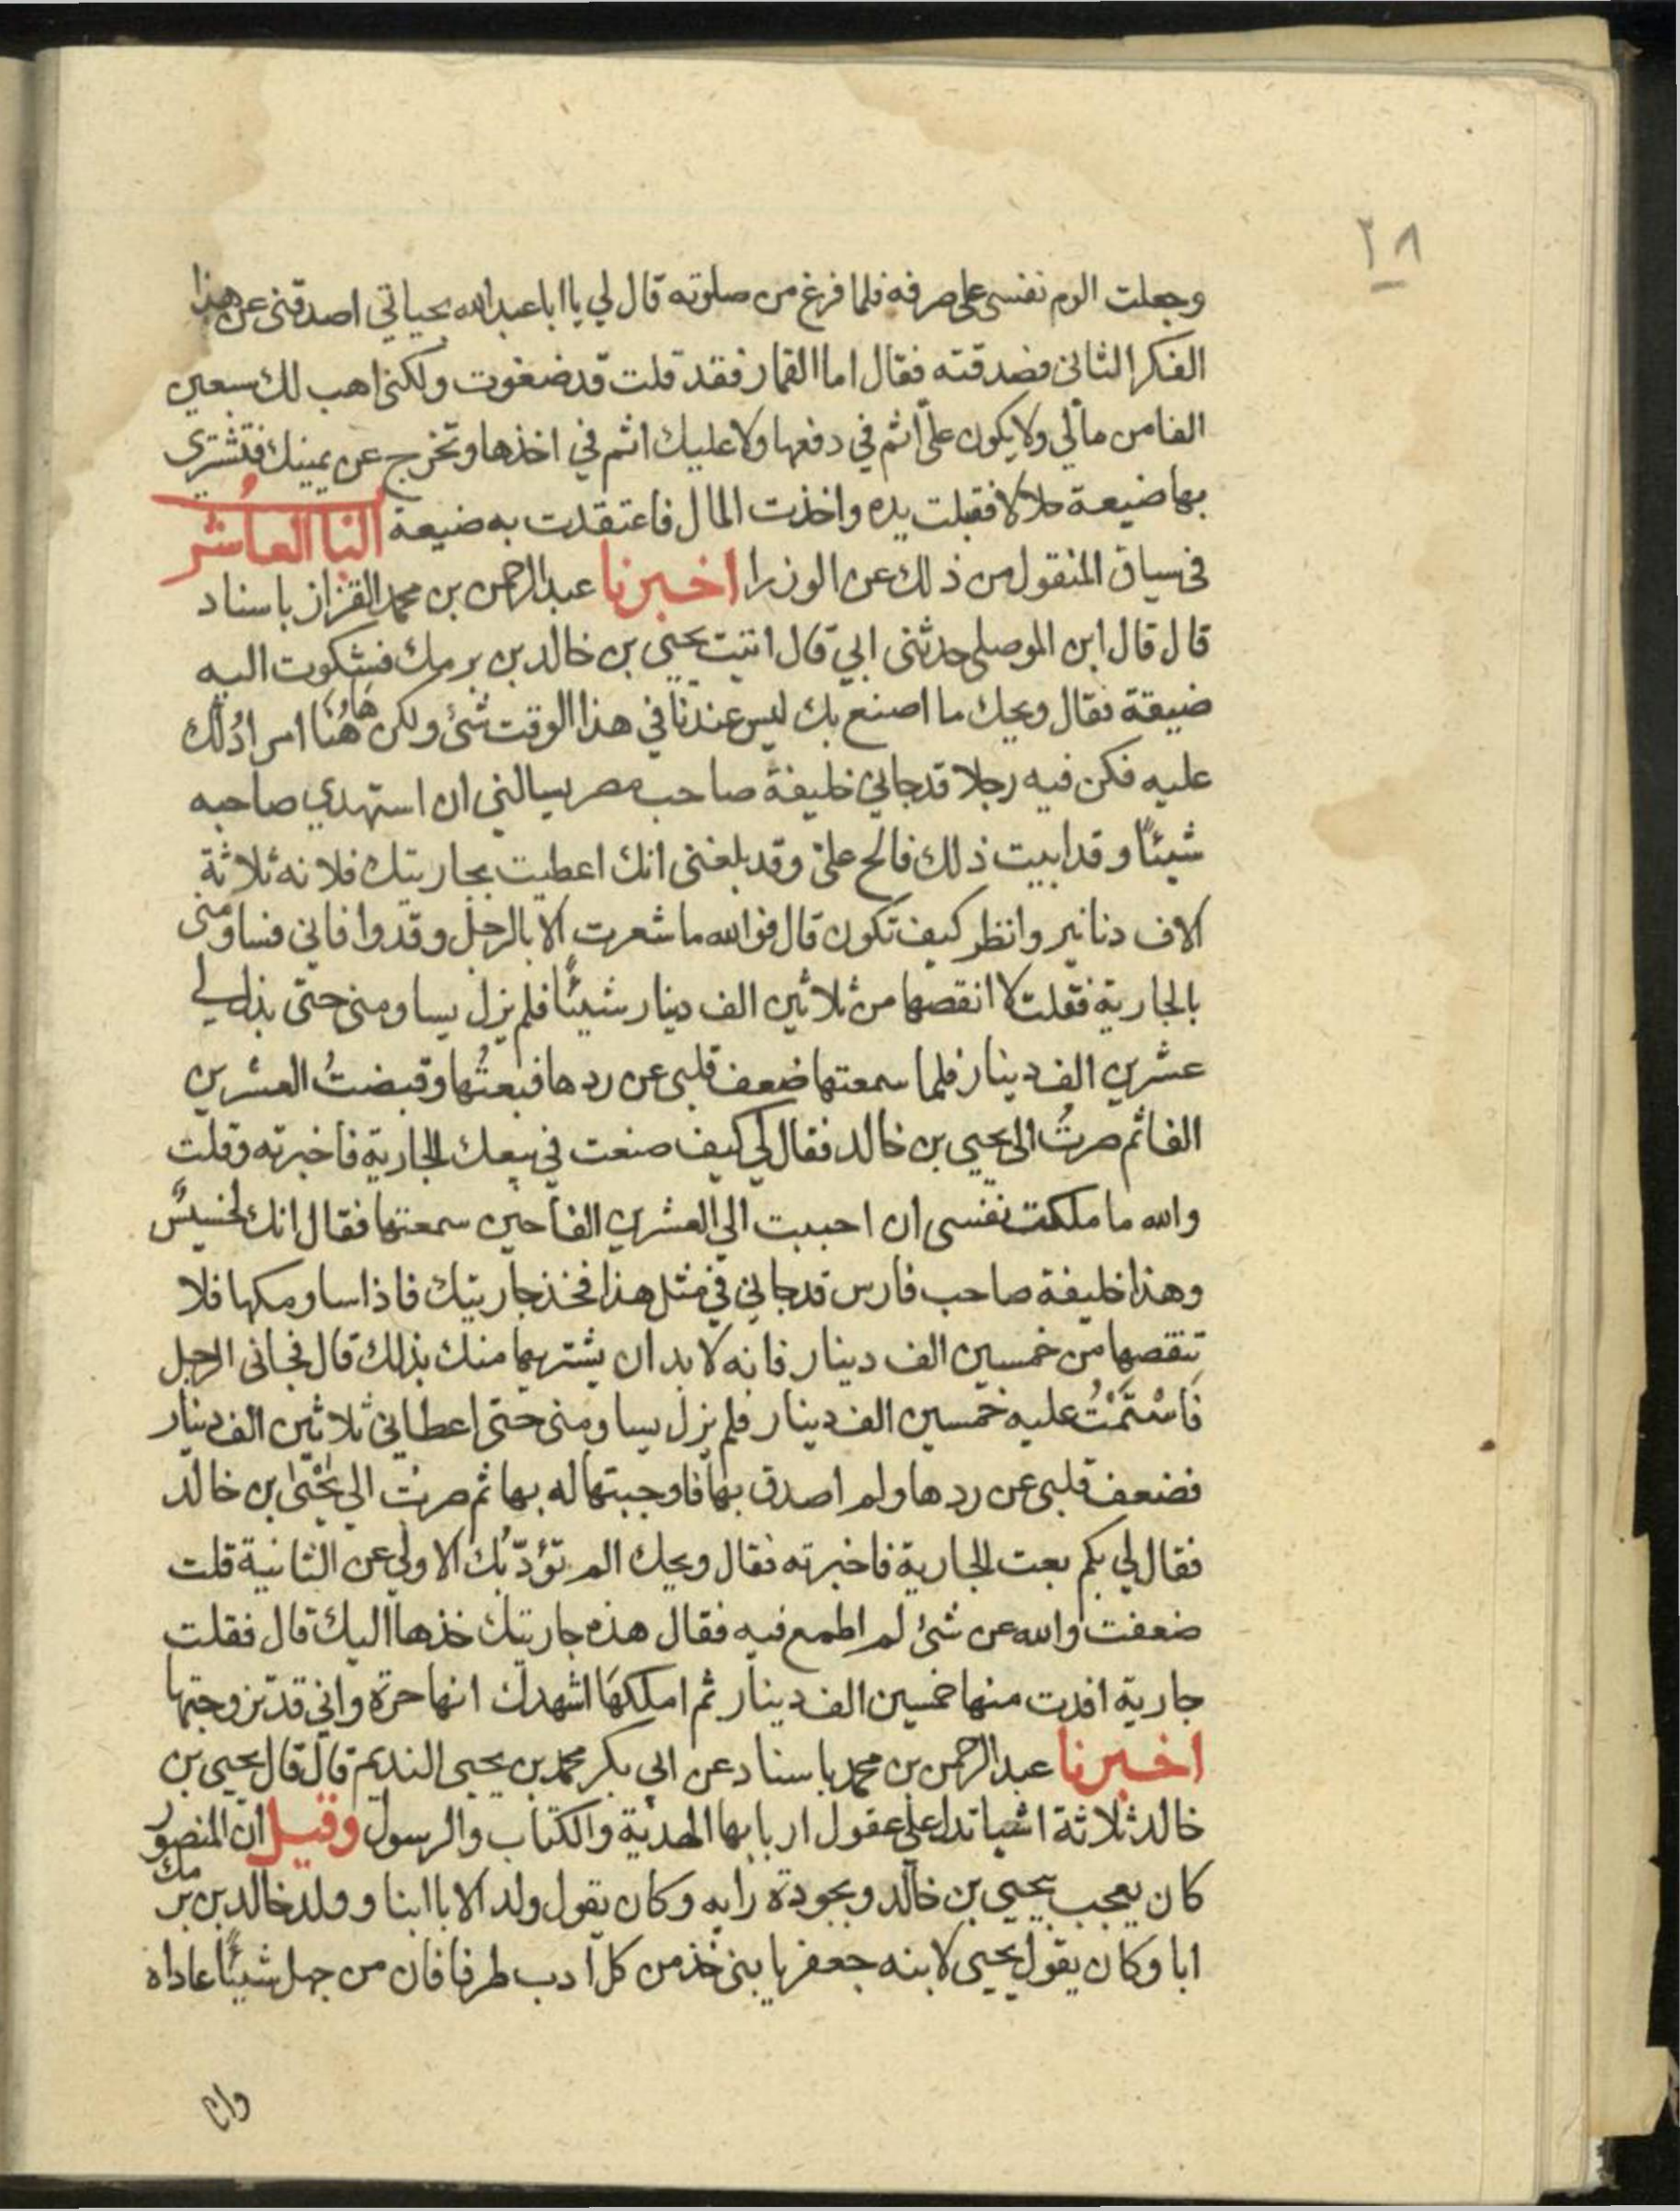 ٢٨
وجعلت الوم نفسي على صرفه فلما فرغ من صلوته قال لي يا ابا عبد الله بحياتي اصدقني عن هذا
الفكر الثاني فصدقته فقال اما القمار فقد قلت قد ضغوت ولكني اهب لك سبعين
الفا من مالي ولا يكون عليّ اثم في دفعها ولا عليك اثم في اخذها وتخرج عن يمينك فتشتري
بها ضيعة حلالا فقبلت يده واخذت المال فاعتقدت به ضيعة البا العاشر
في سياق المنقول من ذلك عن الوزرا اخبرنا عبد الرحمن بن محمد القزاز باسناد
قال قال ابن الموصلي حدثني ابي قال اتيت يحيى بن خالد بن برمك فشكوت اليه
ضيقة فقال ويحك ما اصنع بك ليس عندنا في هذا الوقت شئ ولكن هٰهُنا امر ادُلك
عليه فكن فيه رجلا قد جاني خليفة صاحب مصر يسالني ان استهدي صاحبه
شيئًا وقد ابيت ذلك فالح عليّ وقد بلغني انك اعطيت بجاريتك فلانه ثلاثة
الاف دنانير وانظر كيف تكون قال فوالله ما شعرت الا بالرجل وقد وافاني فساومني
بالجارية فقلت لا انقصها من ثلاثين الف دينار شيئًا فلم يزل يساومني حتى بذل لي
عشرين الف دينار فلما سمعتها ضعف قلبي عن ردها فبعتُها وقبضتُ العشرين
الفا ثم صرتُ الى يحيى بن خالد فقال لي كيف صنعت في بيعك الجارية فاخبرته وقلت
والله ما ملكت نفسي ان احببت الي العشرين الفا حين سمعتها فقال انك لخسيسٌ
وهذا خليفة صاحب فارس قد جاني في مثل هذا فخذ جاريتك فاذا ساومكها فلا
تنقصها من خمسين الف دينار فانه لا بد ان يشتريها منك بذلك قال فجاني الرجل
فَاسْتَمْتُ عليه خمسين الف دينار فلم يزل يساومني حتى اعطاني ثلاثين الف دينار
فضعف قلبي عن ردها ولم اصدق بها فاوجبتها له بها ثم صرت الى يَحْيٰى بن خالد
فقال لي بكم بعت الجارية فاخبرته فقال ويحك الم تؤدّبُك الاولي عن الثانية قلت
ضعفت والله عن شئ لم اطمع فيه فقال هذه جاريتك خذها اليك قال فقلت
جارية افدت منها خمسين الف دينار ثم املكهَا اشهدك انها حرة واني قد تزوجتها
اخبرنا عبد الرحمن بن محمد باسناد عن ابي بكر محمد بن يحيى النديم قال قال يحيى بن
خالد ثلاثة اشيا تدل على عقول اربابها الهدية والكتاب والرسول وقيل ان المنصور
كان يعجب بيحيى بن خالد وبجودة رايه وكان يقول ولد الابا ابنا وولد خالد بن برمك
ابا وكان يقول يحيى لابنه جعفر يا بنى خذ من كل ادب طرفا فان من جهل شيئًا عاداه
وان